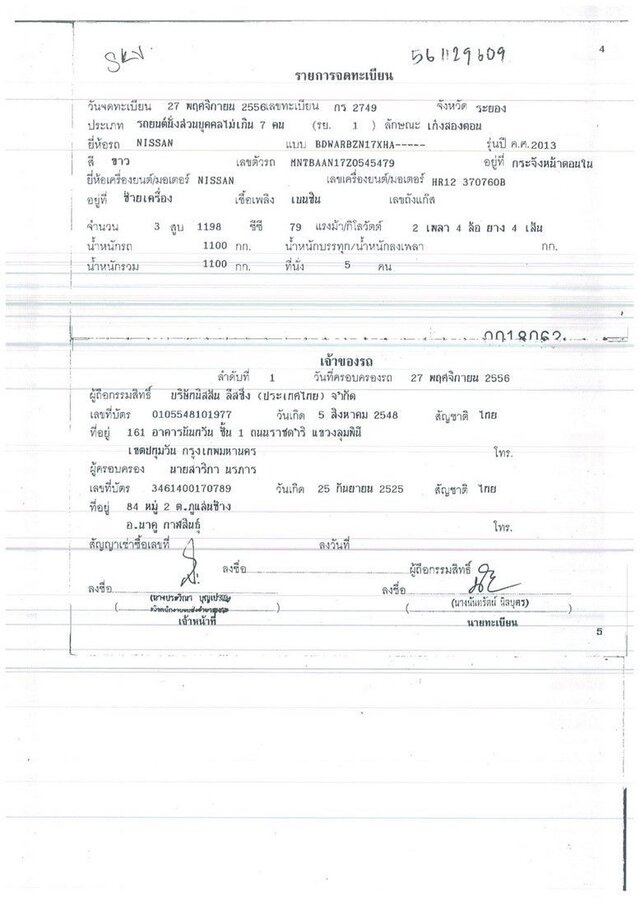 561129609
4
รายการจดทะเบียน
วันจดทะเบียน 27 พฤศจิกายน 2556 เลขทะเบียน กร 2749 จังหวัด ระยอง
ประเภท รถยนต์นั่งส่วนบุคคลไม่เกิน 7 คน (รย. 1 ) ลักษณะ เก๋งสองตอน
ยี่ห้อรถ NISSAN แบบ BDWARBZN17XHA----- รุ่นปี ค.ศ.2013
สี ขาว เลขตัวรถ MNTBAAN17Z0545479 อยู่ที่ กระจังหน้าตอนใน
ยี่ห้อเครื่องยนต์/มอเตอร์ NISSAN เลขเครื่องยนต์/มอเตอร์ HR12 370760B
อยู่ที่ ซ้ายเครื่อง เชื้อเพลิง เบนซิน เลขถังแก๊ส
จำนวน 3 สูบ 1198 ซีซี 79 แรงม้า/กิโลวัตต์ 2 เพลา 4 ล้อ ยาง 4 เส้น
น้ำหนักรถ 1100 กก. น้ำหนักบรรทุก/น้ำหนักลงเพลา กก.
น้ำหนักรวม 1100 กก. ที่นั่ง 5 คน
0018062
เจ้าของรถ
ลำดับที่ 1 วันที่ครอบครองรถ 27 พฤศจิกายน 2556
ผู้ถือกรรมสิทธิ์ บริษัทนิสสัน ลีสซิ่ง (ประเทศไทย) จำกัด
เลขที่บัตร 0105548101977 วันเกิด 5 สิงหาคม 2548 สัญชาติ ไทย
ที่อยู่ 161 อาคารนันทวัน ชั้น 1 ถนนราชดำริ แขวงลุมพินี
เขตปทุมวัน กรุงเทพมหานคร โทร.
ผู้ครอบครอง นายสาริกา นรภาร
เลขที่บัตร 3461400170789 วันเกิด 25 กันยายน 2525 สัญชาติ ไทย
ที่อยู่ 84 หมู่ 2 ต.ภูแล่นช้าง
อ.นาคู กาฬสินธุ์ โทร.
สัญญาเช่าซื้อเลขที่ ลงวันที่
ลงชื่อ ผู้ถือกรรมสิทธิ์
ลงชื่อ ลงชื่อ
(นางนันทรัตน์ นิลบุตร)
เจ้าหน้าที่ นายทะเบียน
5